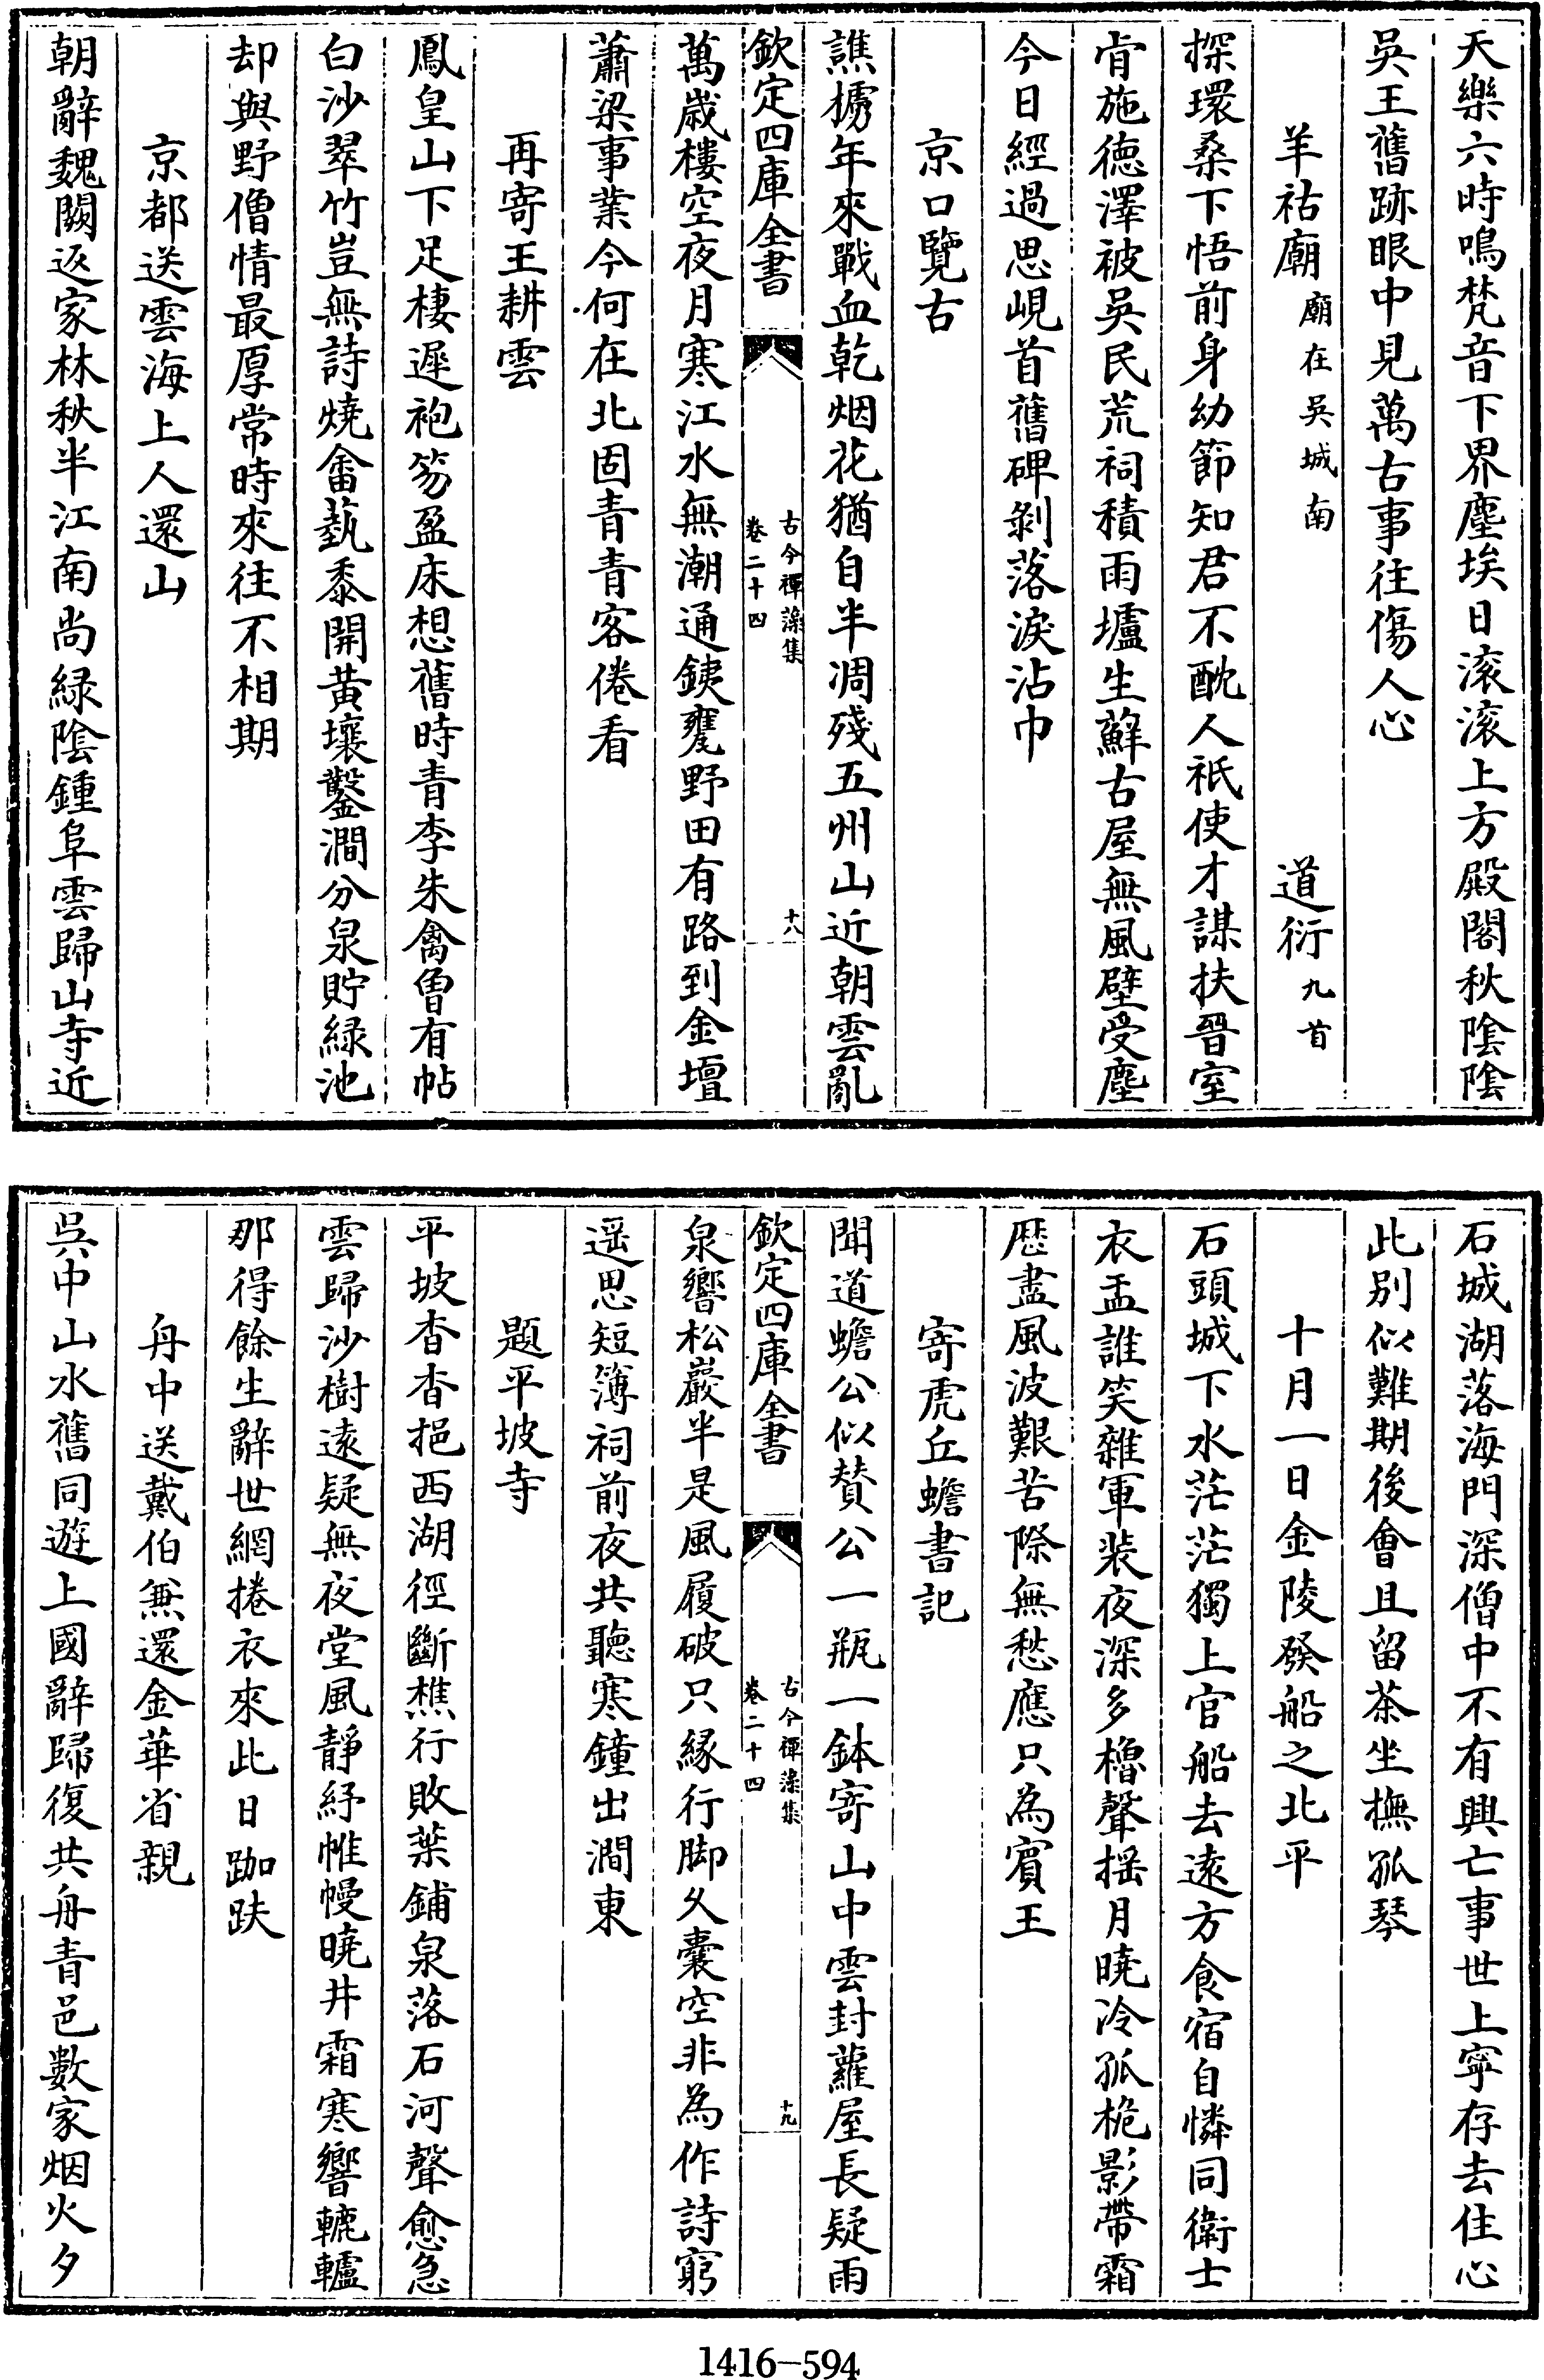 天樂六時鳴梵音下界塵埃日滚滚上方殿閣秋陰陰
吳王舊跡眼中見萬古事往傷人心
羊祜廟廟在吳城南 道衍九首
探環桑下悟前身幼節知君不酖人祇使才謀扶晉室
肯施徳澤被吳民荒祠積雨壚生蘚古屋無風壁受塵
今日經過思峴首舊碑剝落淚沾巾
京口覽古
譙櫓年來戰血乾烟花猶自半凋殘五州山近朝雲亂
欽定四庫全書 古今禪藻集 卷二十四 十八
萬歲樓空夜月寒江水無潮通鐵甕野田有路到金壇
蕭梁事業今何在北固青青客倦看
再寄王耕雲
鳳皇山下足棲遲袍笏盈床想舊時青李朱禽曾有帖
白沙翠竹豈無詩燒畬蓺黍開黃壤鑿澗分泉貯緑池
却與野僧情最厚常時來往不相期
京都送雲海上人還山
朝辭魏闕返家林秋半江南尚緑陰鍾阜雲歸山寺近
石城湖落海門深僧中不有興亡事世上寧存去住心
此别似難期後會且留茶坐撫孤琴
十月一日金陵發船之北平
石頭城下水茫茫獨上官船去遠方食宿自憐同衛士
衣盂誰笑雜軍裝夜深多櫓聲摇月曉冷孤桅影帶霜
歴盡風波艱苦際無愁應只為賓王
寄虎丘蟾書記
聞道蟾公似贊公一瓶一鉢寄山中雲封蘿屋長疑雨
欽定四庫全書 古今禪藻集 卷二十四 十九
泉響松巖半是風履破只緣行脚久囊空非為作詩窮
遥思短簿祠前夜共聽寒鐘出澗東
題平坡寺
平坡杳杳挹西湖徑斷樵行敗葉鋪泉落石河聲愈急
雲歸沙樹遠疑無夜堂風靜紓帷幔曉井霜寒響轆轤
那得餘生辭世網捲衣來此日跏趺
舟中送戴伯兼還金華省親
吳中山水舊同遊上國辭歸復共舟青邑數家烟火夕
1416—594